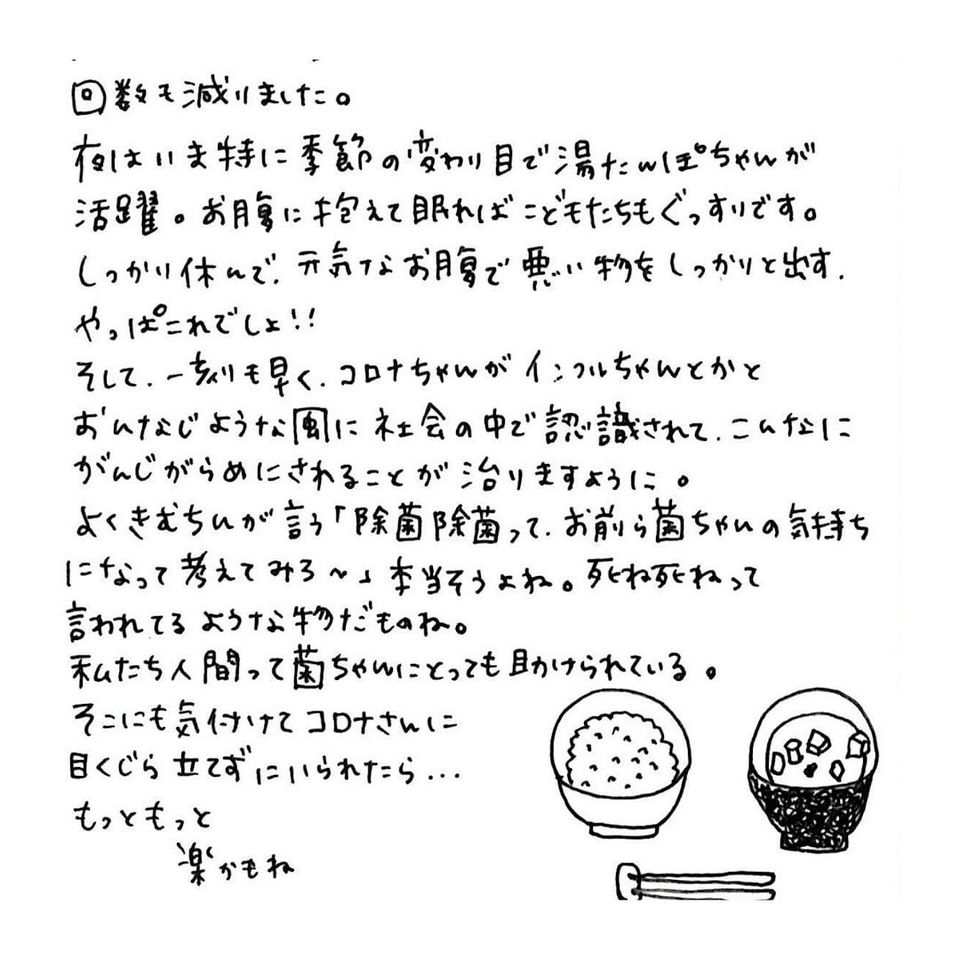 回数も減りました。
夜はいま特に季節の変わり目で湯たんぽちゃんが
活躍。お腹に抱えて眠ればこどもたちもぐっすりです。
しっかり休んで、元気なお腹で悪い物をしっかりと出す、
やっぱこれでしょ!!
そして、一刻も早く、コロナちゃんがインフルちゃんとかと
おんなじような風に社会の中で認識されて、こんなに
がんじがらめにされることが治りますように。
よくきむちんが言う「除菌除菌って、お前ら菌ちゃんの気持ち
になって考えてみろ〜」本当そうよね。死ね死ねって
言われてるような物だものね。
私たち人間って菌ちゃんにとっても助けられている。
そこにも気付けてコロナさんに
目くじら立てずにいられたら...
もっともっと
楽かもね